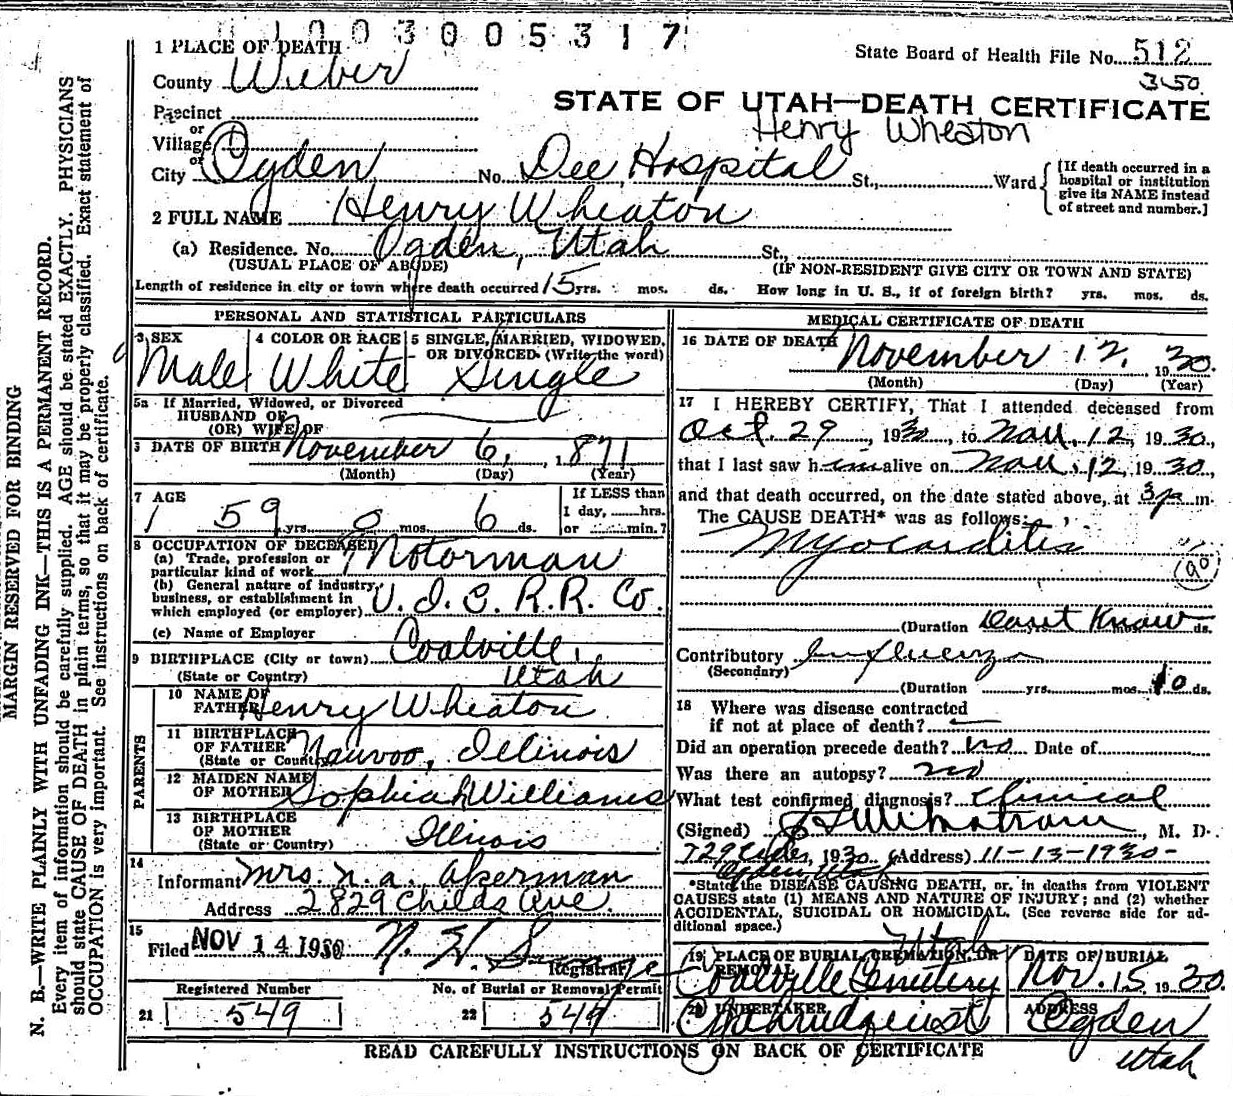 1003005317
1 PLACE OF DEATH
State Board of Health File No. 512
350
County Weber
STATE OF UTAH—DEATH CERTIFICATE
Precinct
or
Henry Wheaton
Village
or
City Ogden No. Dee Hospital St., Ward
[If death occurred in a
hospital or institution
give its NAME instead
of street and number.]
2 FULL NAME Henry Wheaton
(a) Residence. No. Ogden, Utah St.,
(USUAL PLACE OF ABODE) (IF NON-RESIDENT GIVE CITY OR TOWN AND STATE)
Length of residence in city or town where death occurred 15 yrs. mos. ds. How long in U. S., if of foreign birth? yrs. mos. ds.
PERSONAL AND STATISTICAL PARTICULARS
3 SEX 4 COLOR OR RACE 5 SINGLE, MARRIED, WIDOWED,
OR DIVORCED (Write the word)
Male White Single
5a If Married, Widowed, or Divorced
HUSBAND OF
(OR) WIFE OF
6 DATE OF BIRTH November 6, 1871
(Month) (Day) (Year)
7 AGE If LESS than
1 day, hrs.
59 yrs. 0 mos. 6 ds. or min.?
8 OCCUPATION OF DECEASED
(a) Trade, profession or
particular kind of work Motorman
(b) General nature of industry,
business, or establishment in
which employed (or employer) U. I. C. R.R. Co.
(c) Name of Employer
9 BIRTHPLACE (City or town) Coalville,
(State or Country) Utah
PARENTS
10 NAME OF
FATHER Henry Wheaton
11 BIRTHPLACE
OF FATHER Nauvoo, Illinois
(State or Country)
12 MAIDEN NAME
OF MOTHER Sophiah Williams
13 BIRTHPLACE
OF MOTHER Illinois
(State or Country)
14
Informant Mrs. N. A. Akerman
Address 2829 Childs Ave.
15
Filed NOV 14 1930
Registrar
Registered Number No. of Burial or Removal Permit
21 549 22 549
MEDICAL CERTIFICATE OF DEATH
16 DATE OF DEATH November 12, 1930.
(Month) (Day) (Year)
17 I HEREBY CERTIFY, That I attended deceased from
Oct. 29, 1930, to Nov. 12, 1930,
that I last saw him alive on Nov. 12, 1930,
and that death occurred, on the date stated above, at 3 p m.
The CAUSE DEATH* was as follows:
Myocarditis
90
(Duration Don't Know ds.
Contributory Influenza
(Secondary)
(Duration yrs. mos. 10 ds.
18 Where was disease contracted
if not at place of death?
Did an operation precede death? no Date of
Was there an autopsy? no
What test confirmed diagnosis? Clinical
(Signed) , M. D.
1930 (Address) 11-13-1930-
Ogden, Utah
*State the DISEASE CAUSING DEATH, or, in deaths from VIOLENT
CAUSES state (1) MEANS AND NATURE OF INJURY; and (2) whether
ACCIDENTAL, SUICIDAL OR HOMICIDAL. (See reverse side for ad-
ditional space.)
19 PLACE OF BURIAL, CREMATION, OR
REMOVAL
Utah
Coalville Cemetery
DATE OF BURIAL
Nov. 15 1930.
20 UNDERTAKER
ADDRESS
Ogden
Utah
READ CAREFULLY INSTRUCTIONS ON BACK OF CERTIFICATE
MARGIN RESERVED FOR BINDING
N. B.—WRITE PLAINLY WITH UNFADING INK—THIS IS A PERMANENT RECORD.
Every item of information should be carefully supplied. AGE should be stated EXACTLY. PHYSICIANS
should state CAUSE OF DEATH in plain terms, so that it may be properly classified. Exact statement of
OCCUPATION is very important. See instructions on back of certificate.